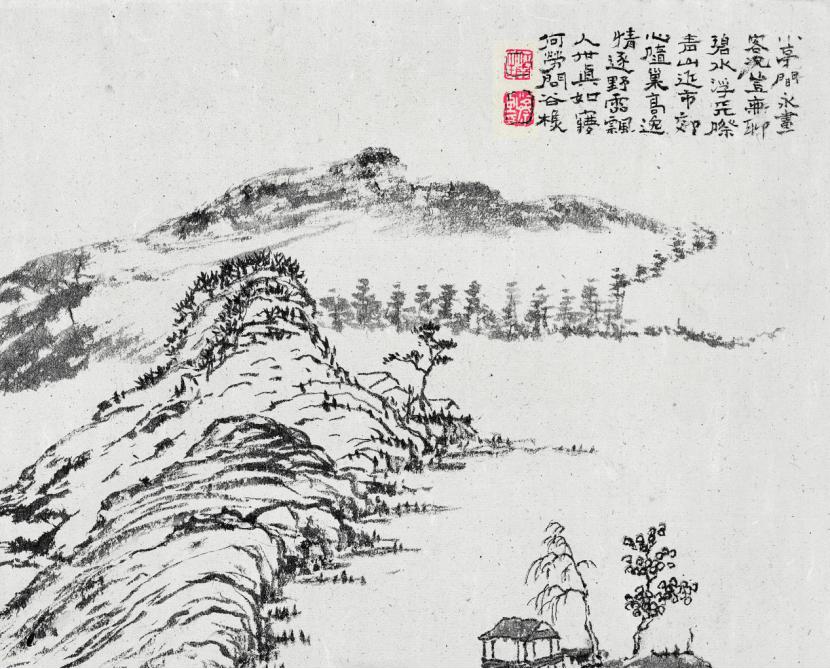 小亭間永晝
客況豈無聊
碧水浮天際
青山近市郊
心隨巢逸
情逐野雲飄
人世真如
何勞問谷樵